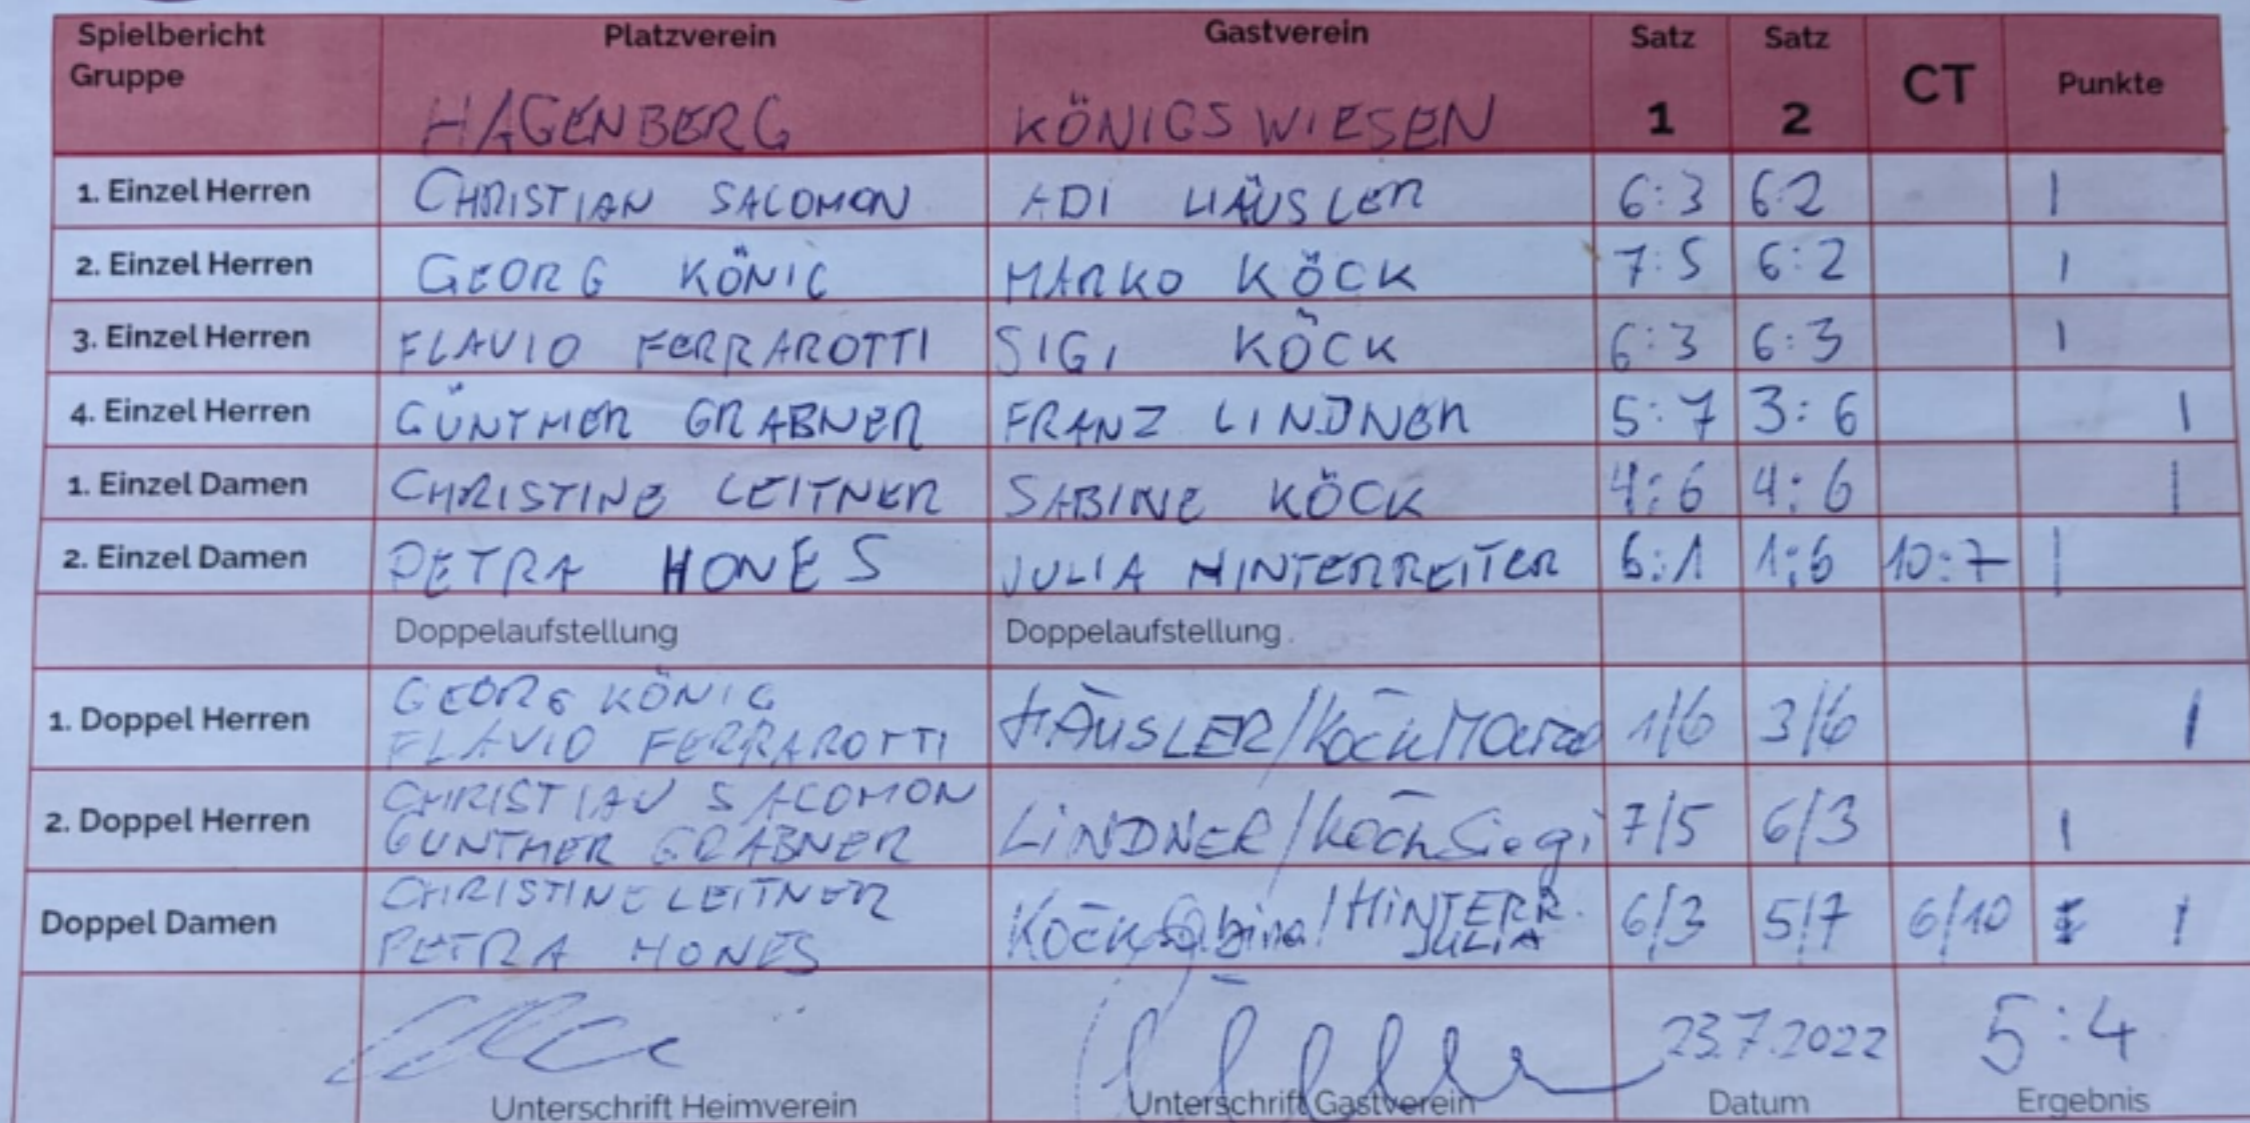 Spielbericht Gruppe Platzverein HAGENBERG Gastverein KÖNIGSWIESEN Satz 1 Satz 2 CT Punkte
1. Einzel Herren CHRISTIAN SALOMON ADI HÄUSLER 6:3 6:2 1
2. Einzel Herren GEORG KÖNIG MARKO KÖCK 7:5 6:2 1
3. Einzel Herren FLAVIO FERRAROTTI SIGI KÖCK 6:3 6:3 1
4. Einzel Herren GÜNTHER GRABNER FRANZ LINDNER 5:7 3:6 1
1. Einzel Damen CHRISTINE LEITNER SABINE KÖCK 4:6 4:6 1
2. Einzel Damen PETRA HONES JULIA HINTERREITER 6:1 1:6 10:7 1
Doppelaufstellung Doppelaufstellung
1. Doppel Herren GEORG KÖNIG FLAVIO FERRAROTTI HÄUSLER/Köck Marko 1/6 3/6 1
2. Doppel Herren CHRISTIAN SALOMON GÜNTHER GRABNER LINDNER/Köck Siegi 7/5 6/3 1
Doppel Damen CHRISTINE LEITNER PETRA HONES Köck Sabina/HINTERR. JULIA 6/3 5/7 6/10 1
23.7.2022 5:4
Unterschrift Heimverein Unterschrift Gastverein Datum Ergebnis